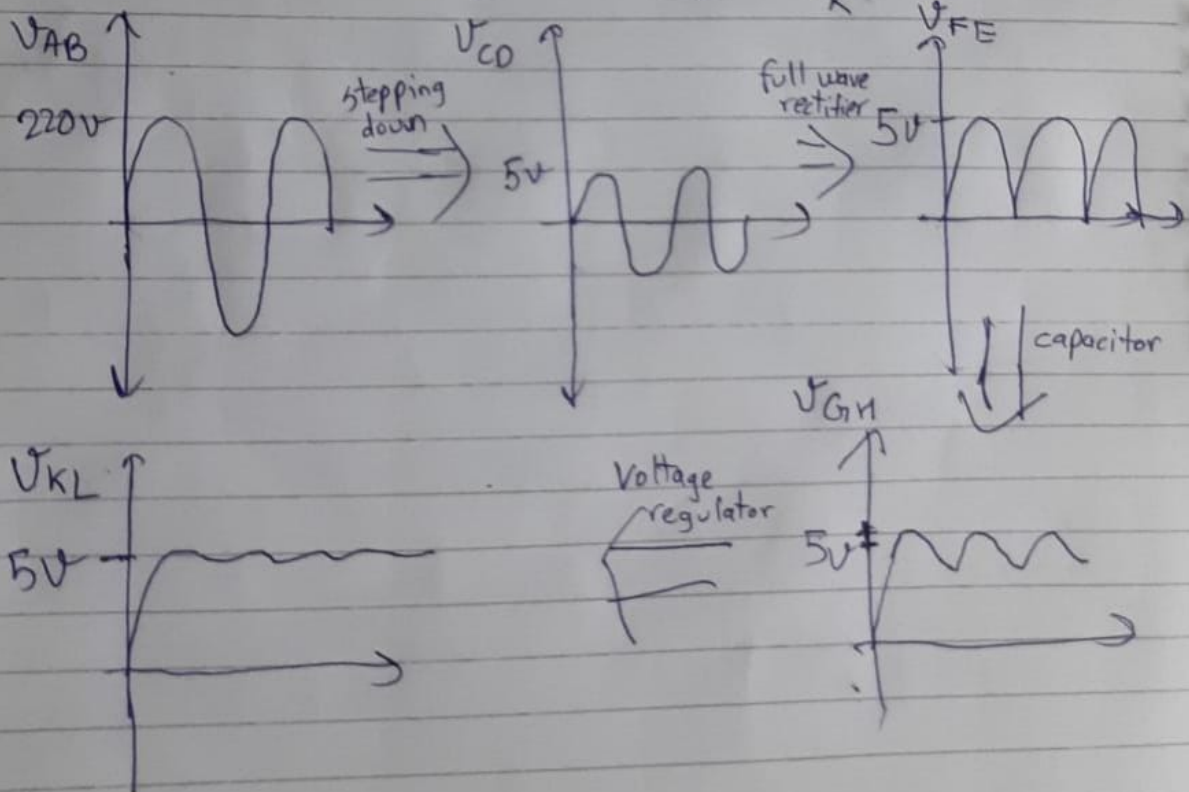 VAB
220v
stepping
down
VCD
5v
full wave
rectifier
VFE
5v
capacitor
VGH
5v
Voltage
regulator
VKL
5v